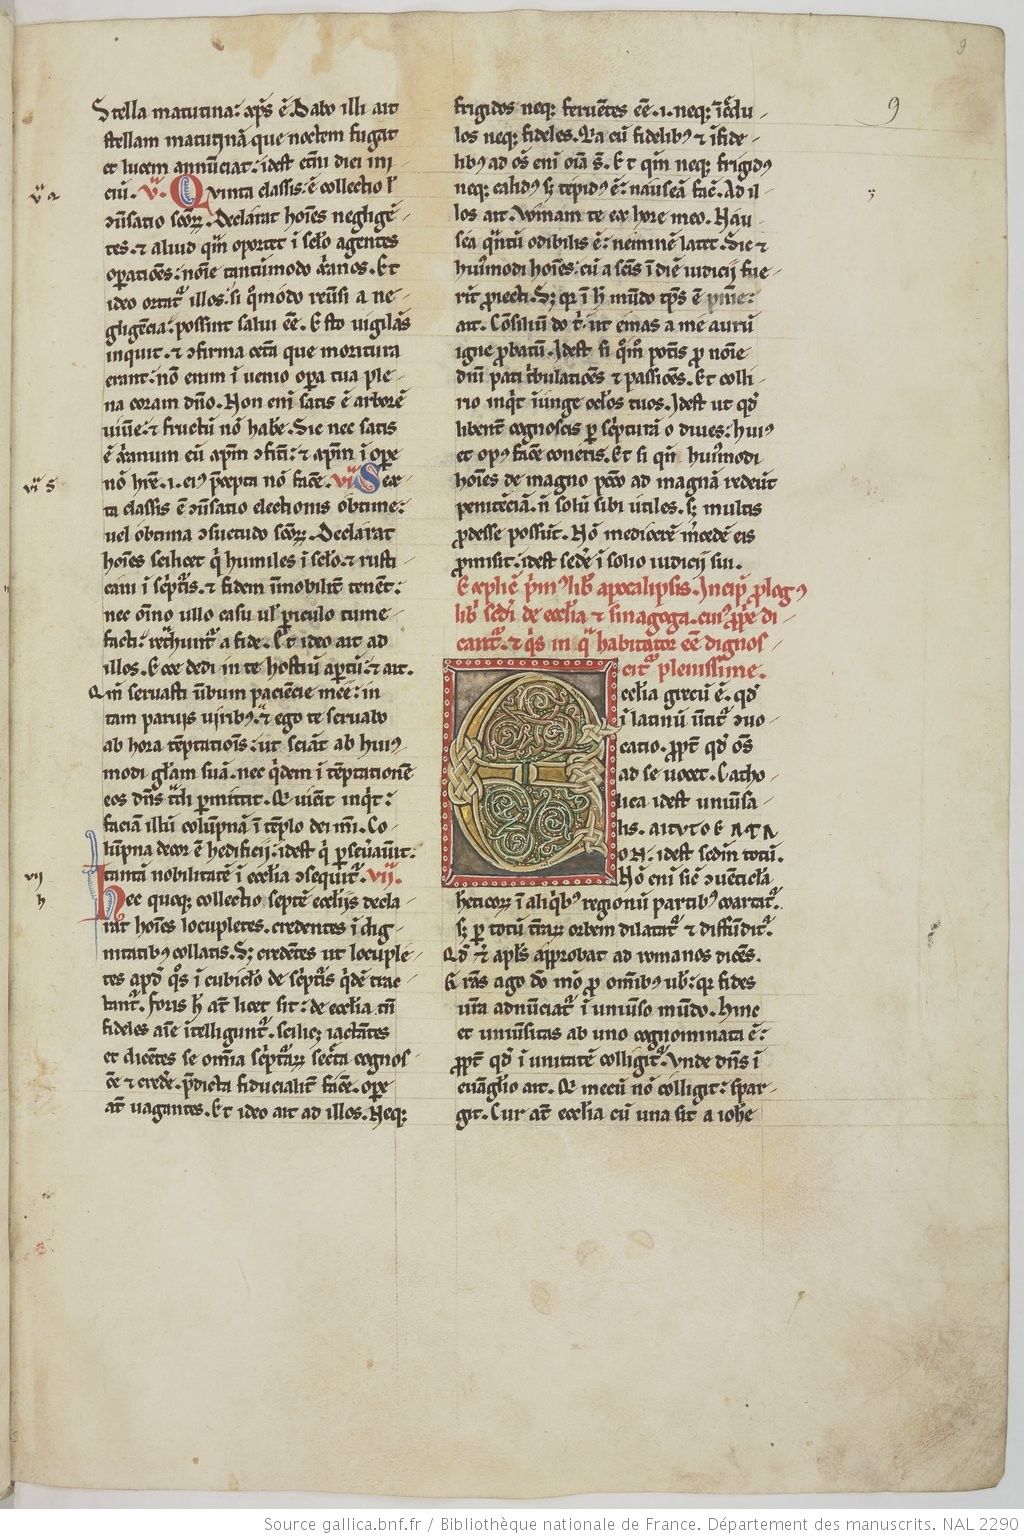 9
9
Stella matutina: xp̄s ē. Dabo illi ait
stellam matutinā que noctem fugat
et lucem annūciat: idest etnī diei ini
ciū. v. Quinta classis: ē collectio ł
ɔūsatio scōꝝ. Declarat hoīes negligē-
tes. ⁊ aliud qm̄ oportet ī sc̄lo agentes
operatiōes: noīe tantūmodo xp̄ianos. Et
ideo ortat᷑ illos: si q̊modo reūsi a ne-
gligēcia: possint salui eē. Esto vigilās
inquit. ⁊ ɔfirma ceta que moritura
erant: nō enim ī uenio opera tua ple-
na coram dn̄o. Non enī satis ē arborē
uiuē: ⁊ fructū nō habe. Sic nec satis
ē xp̄ianum eū xp̄m ɔfiti: ⁊ xp̄m ī ope
nō hr̄e. i. eiꝰ p̄cepta nō facē. vi Sex-
ta classis ē ɔūsatio electionis obtime:
uel obtima ɔsuetudo scōꝝ. Declarat
hoīes scilicet qͥ humiles ī sc̄lo. ⁊ rusti
cani ī sc̄ptis. ⁊ fidem īmobilit̄ tenent:
nec oīno ullo casu uł periculo time
facti: ret̄hunt᷑ a fide. Et ideo ait ad
illos. Ecce dedi in te hostiū aptū: ⁊ ait.
Qm̄ seruasti ūbum paciēcie mee: in
tam paruis uiribꝰ. ⁊ ego te seruabo
ab hora tēptationis: ut sciāt ab huiꝰ
modi gl̄am suā. nec qͥdem ī tēptationē
eos dn̄s t̄hi permittit. Q̄ uicit inqͥt:
faciam illū colūpnā ī tēplo dei mī. Co-
lūpna decor ē hedificij: idest qͥ perseūauit:
tantā nobilitatē ī ecclīa ɔsequit᷑. vij.
Hec quoqꝫ collectio septē eccl̄ijs decla-
rat hoīes locupletes. credentes ī dig-
nitatibꝰ collatis. Sꝫ credētes ut locuple-
tes apd̄ q̊s ī cubicl̄o de sc̄ptis qͥdē trac-
tant᷑. foris h̄ at̄ licet sit: de eccl̄ia tn̄
fideles aīe ītelligunt᷑. scilicꝫ iactātes
et dicētes se omīa sc̄ptaꝝ sec̄ta cognos-
cē ⁊ credē. p̄dicta fiducialit̄ facē. opē
at̄ uagantes. Et ideo ait ad illos. Neqꝫ
v a
vi s
vij
h
frigidos neqꝫ feruētes eē. i. neqꝫ īcdu-
los neqꝫ fideles. Ea eū fidelibꝰ ⁊ īfide-
libꝰ ad os̄ enī oīa s̄. Et qm̄ neqꝫ frigidꝰ
neqꝫ calidꝰ sꝫ tepidꝰ ē: nauseā facē. Ad il-
los ait. Vomam te ex hore meo. Nau-
sea qͣntū odibilis ē: neminē latet. Sic ⁊
huiꝰmodi hoīes: cū a sc̄īs ī diē iudicij fue-
rīt proiecti. Sꝫ qr ī h̄ mūdo tēps ē pn̄ie:
ait. Cōsiliū do t̄. ut emas a me aurū
igne probatū. Idest si q̊m̊ potis pro noīe
dn̄i pati tͥbulatiōes ⁊ passiōes. Et colli-
rio inqͥt īunge oc̄los tuos. Idest ut qd̄
libent̄ cognoscis per sc̄pturā o diues: huiꝰ
et opꝰ facē coneris. Et si qn̄ huiꝰmodi
hoīes de magno pccō ad magnā redeūt
penitēciā. n̄ solū sibi utiles. sꝫ multis
prodesse possūt. Nō mediocrē m̄cedē eis
promisit: idest sedē ī solio iudicij sui.
Explic̄ p̄mꝰ lib̄ apocalipsis. Incip̄ prologꝰ
lib̄ sc̄di de eccl̄ia ⁊ sinagoga. cuiꝰ p̄pe di-
cant᷑. ⁊ qͥs in qͣ habitator eē dignos-
cit᷑ plenissime.
Eccl̄ia grecū ē. qd̄
ī latinū ūtit᷑ ɔuo-
catio. propt̄ qd̄ os̄
ad se uocet. Catho-
lica idest uniūsa-
lis. ΑΙΤΥΤΟ Ε ΛΤΛ
ΟΝ. idest sedm̄ totū.
Nō enī sic̄ ɔuēticl̄a
heticoꝝ ī aliqͥbꝰ regionū partibꝰ coartat᷑.
sꝫ per totū t̄rarū orbem dilatat᷑ ⁊ diffūdit᷑.
Qd̄ ⁊ apl̄s approbat ad romanos dicēs.
Gras ago dō mō pro omībꝰ ub̄: qr fides
ūra adnūciat᷑ ī uniūso mūdo. hinc
et uniūsitas ab uno cognominata ē:
propt̄ qd̄ ī unitatē colligit᷑. Vnde dn̄s ī
euāgl̄io ait. Q̄ mecū nō colligit: spar-
git. Cur at̄ eccl̄ia cū una sit a ioh̄e
Source gallica.bnf.fr / Bibliothèque nationale de France. Département des manuscrits. NAL 2290